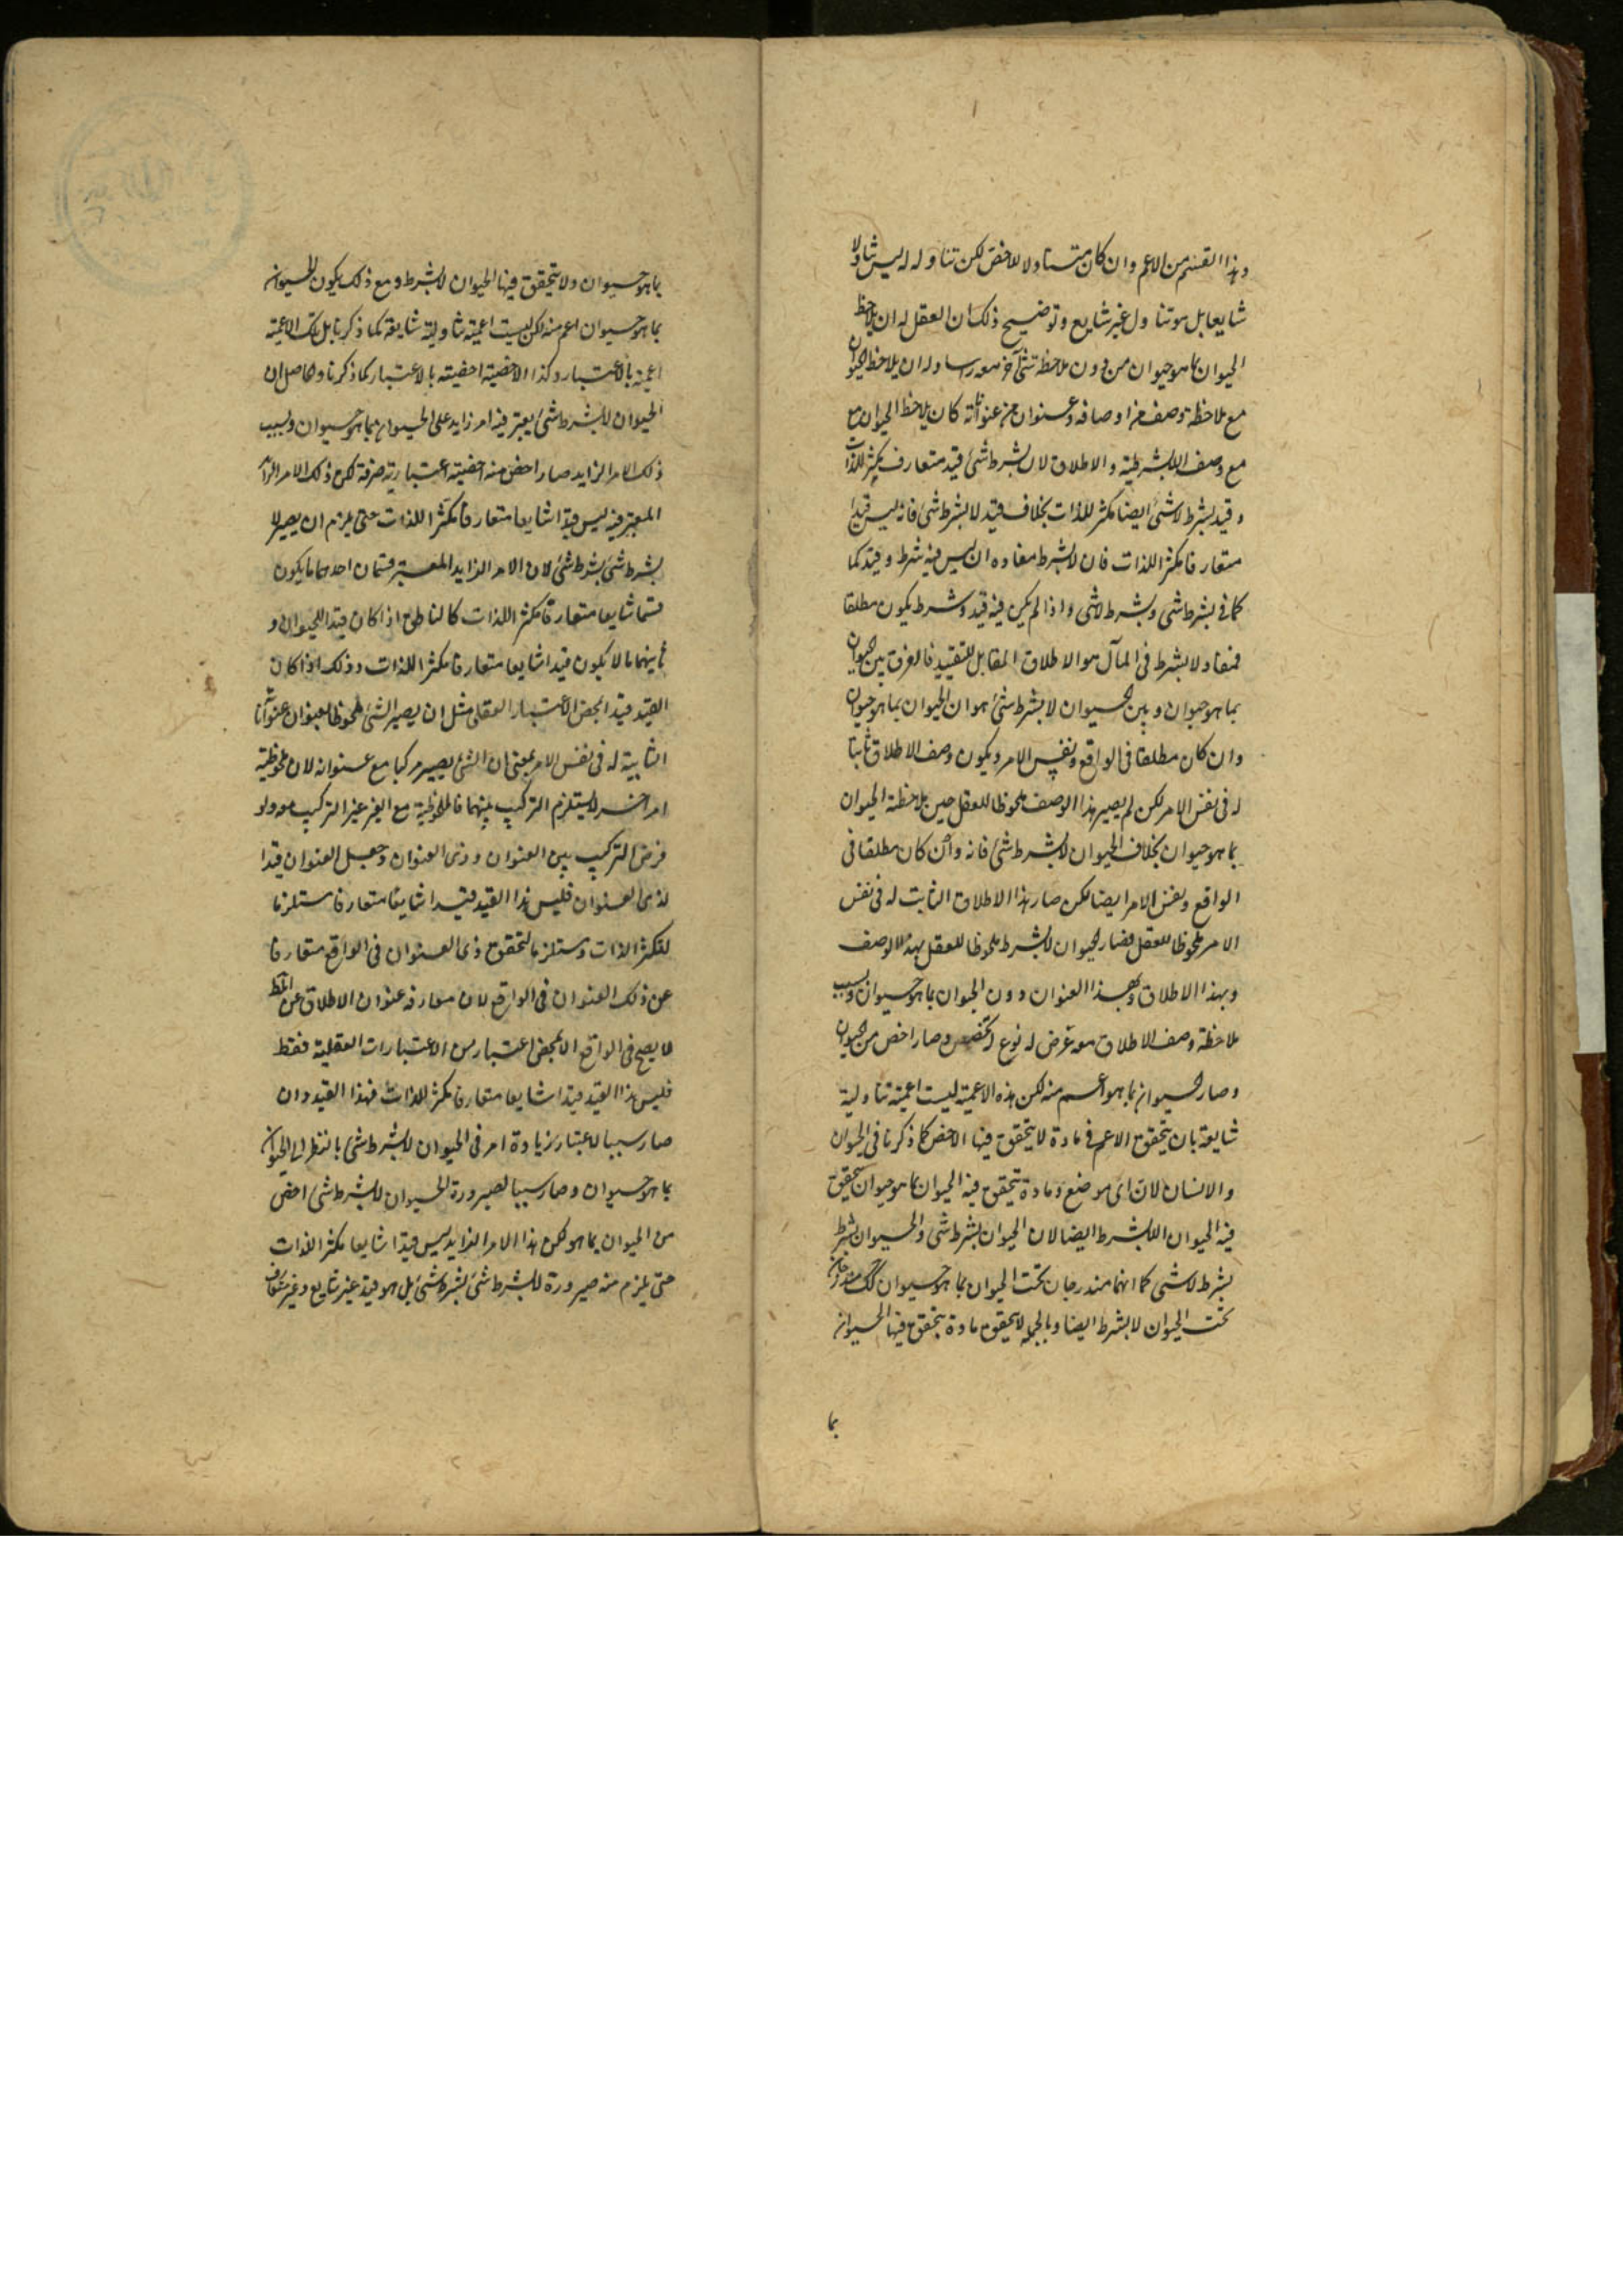 وهذا القسم من الاعم وان كان متناولا للاخص لكن تناوله له ليس تناولا
شايعا بل هو تناول غير شايع وتوضيح ذلك ان العقل له ان يلاحظ
الحيوان بما هو حيوان من دون ملاحظة شئ آخر معه راسا وله ان يلاحظ الحيوان
مع ملاحظة وصف من اوصافه وعنوان من عنواناته كان يلاحظ الحيوان مع
مع وصف اللابشرطية والاطلاق لان بشرط شئ قيد متعارف يكثر للذات
وقيد بشرط لا شئ ايضا مكثر للذات بخلاف قيد لا بشرط شئ فانه ليس قيدا
متعارفا مكثر اللذات فان لابشرط مفاده ان ليس فيه شرط وقيد كما
كما فى بشرط شى وبشرط لا شى واذا لم يكن فيه قيد وشرط يكون مطلقا
فمفاد لابشرط فى المآل هو الاطلاق المقابل للتقييد فالفرق بين الحيوان
بما هو حيوان وبين الحيوان لا بشرط شئ هو ان الحيوان بما هو حيوان
وان كان مطلقا فى الواقع ونفس الامر ويكون وصف الاطلاق ثابتا
له فى نفس الامر لكن لم يصير هذا الوصف ملحوظا للعقل حين ملاحظة الحيوان
بما هو حيوان بخلاف الحيوان لابشرط شئ فانه وان كان مطلقا فى
الواقع ونفس الامر ايضا لكن صار هذا الاطلاق الثابت له فى نفس
الامر ملحوظا للعقل فصار الحيوان لابشرط ملحوظا للعقل بهذا الوصف
وبهذا الاطلاق وبهذا العنوان دون الحيوان بما هو حيوان وبسبب
ملاحظة وصف الاطلاق معه عرض له نوع تخصص وصار اخص من الحيوان
وصار الحيوان بما هو اعم منه لكن هذه الاعمية ليست اعمية تناولية
شايعة بان يتحقق الاعم فى مادة لا يتحقق فيها الاخص كما ذكرنا فى الحيوان
والانسان لان اى موضع ومادة يتحقق فيه الحيوان بما هو حيوان يتحقق
فيه الحيوان اللابشرط ايضا لان الحيوان بشرط شى والحيوان بشرط
بشرط لا شى كما انهما مندرجان تحت الحيوان بما هو حيوان كك مندرجان
تحت الحيوان لا بشرط ايضا وبالجملة لا يتحقق مادة يتحقق فيها الحيوان
بما
بما هو حيوان ولا يتحقق فيها الحيوان لابشرط ومع ذلك يكون الحيوان
بما هو حيوان اعم منه لكن ليست اعمية تناولية شايعة كما ذكرنا بل تلك الاعمية
اعمية بالاعتبار وكذا الاخصية اخصية بالاعتبار كما ذكرنا والحاصل ان
الحيوان للابشرط شئ يعتبر فيه امر زايد على الحيوان بما هو حيوان وبسبب
ذلك الامر الزايد صار اخص منه اخصية اعتبارية صرفة لكن ذلك الامر الزايد
المعتبر فيه ليس قيدا شايعا متعارفا مكثرا للذات حتى يلزم ان يصير لا
بشرط شئ بشرط شئ لان الامر الزايد المعتبر قسمان احدهما ما يكون
قسما شايعا متعارفا مكثر اللذات كالناطق اذا كان قيدا للحيوان و
ثانيهما ما لا يكون قيدا شايعا متعارفا مكثر اللذات وذلك اذا كان
القيد قيدا بمحض الاعتبار العقلى مثل ان يصير الشئ ملحوظا بعنوان عنواناته
الثابتة له فى نفس الامر بمعنى ان الشئ يصير مركبا مع عنوانه لان ملحوظية
امر اخر لا يستلزم التركيب بينهما فالملحوظية مع الغير غير التركيب معه ولو
فرض التركيب بين العنوان وذى العنوان وجعل العنوان قيدا
لذى العنوان فليس هذا القيد قيدا شايعا متعارفا مستلزما
لتكثر الذات ومستلزما لتحقق ذى العنوان فى الواقع متعارفا
عن ذلك العنوان فى الواقع لان مفارقة عنوان الاطلاق عن المط
لا يصح فى الواقع الا بمحض اعتبار من الاعتبارات العقلية فقط
فليس هذا القيد قيدا شايعا متعارفا مكثر للذات فهذا القيد وان
صار سببا لاعتبار زيادة امر فى الحيوان لابشرط شى بالنظر الى الحيوان
بما هو حيوان وصار سببا لصيرورة الحيوان للابشرط شى اخص
من الحيوان بما هو لكن هذا الامر الزايد ليس قيدا شايعا مكثر الذات
حتى يلزم منه صيرورة للابشرط شئ بشرط شئ بل هو قيد غير شايع وغير متعارف